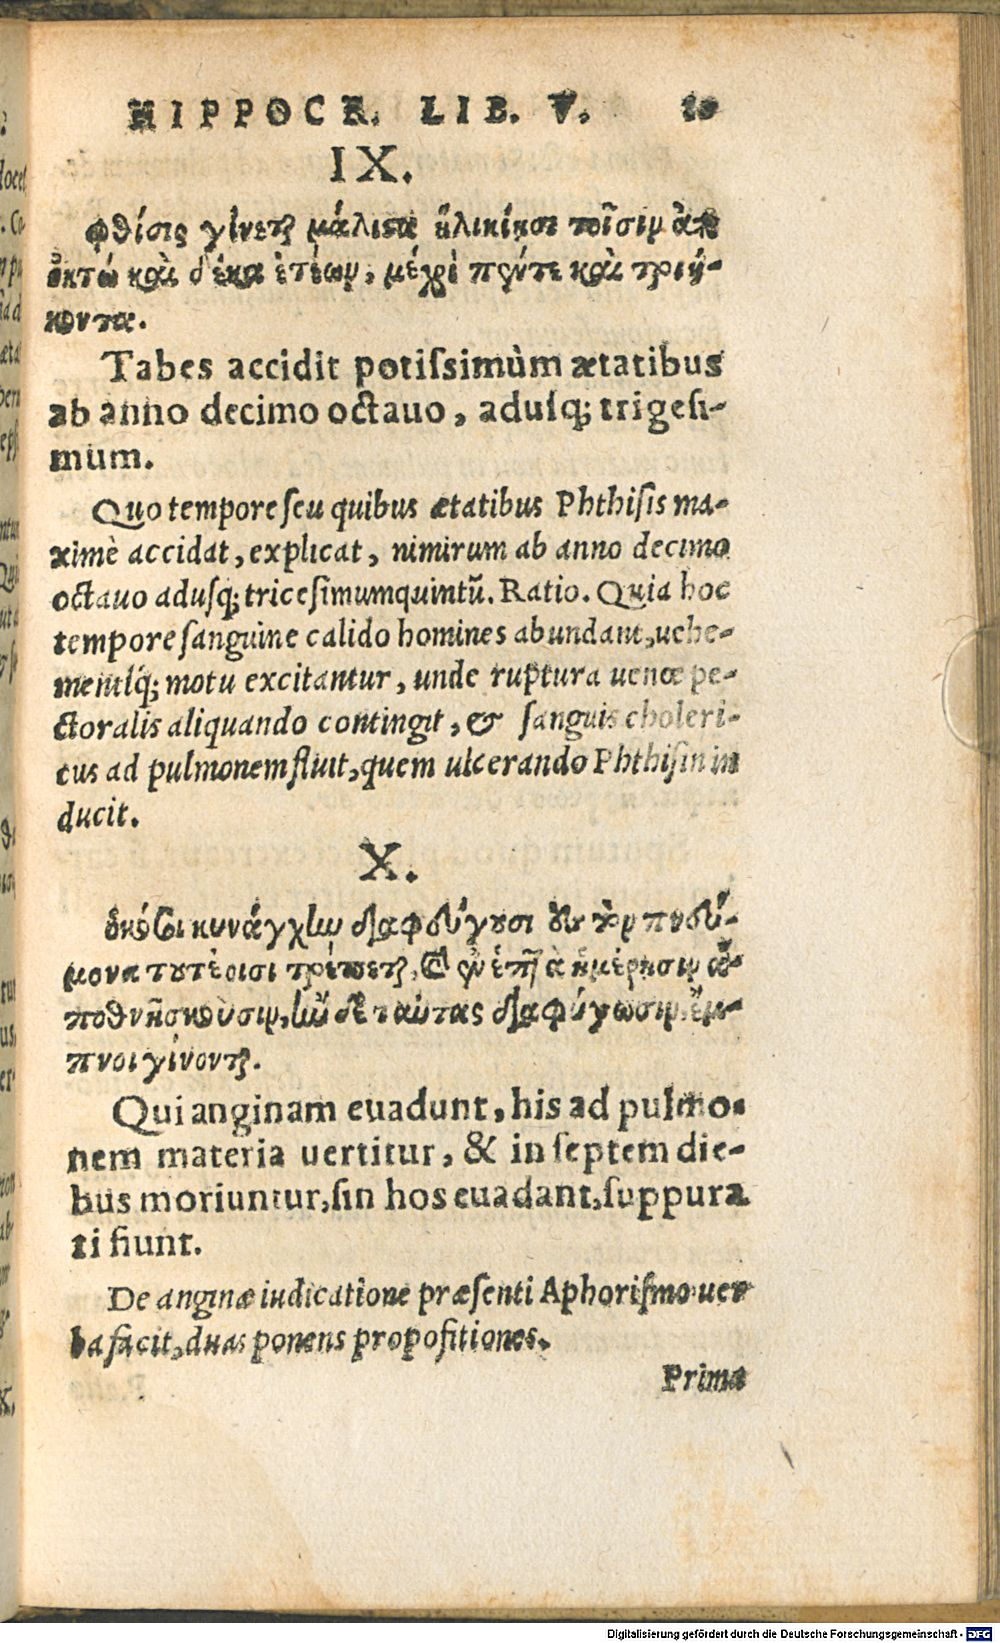 HIPPOCR. LIB. V. 10
IX.
φθίσις γίνεται μάλιστα ἡλικίῃσι τοῖσιν ἀπ
ὀκτὼ καὶ δέκα ἐτέων, μέχρι πέντε καὶ τριή-
κοντα.
Tabes accidit potiſsimùm ætatibus
ab anno decimo octauo, aduſq; trigeſi-
mum.
Quo tempore ſeu quibus ætatibus Phthiſis ma-
ximè accidat, explicat, nimirum ab anno decimo
octauo aduſq; triceſimumquintũ. Ratio. Quia hoc
tempore ſanguine calido homines abundant, uehe-
mentiq́; motu excitantur, unde ruptura uenæ pe-
ctoralis aliquando contingit, & ſanguis choleri-
cus ad pulmonem fluit, quem ulcerando Phthiſin in
ducit.
X.
ὁκόσοι κυνάγχην διαφεύγουσι ἐς τὸν πνεύ-
μονα τουτέοισι τρέπεται, καὶ ἐν ἑπτὰ ἡμέρῃσιν ἀ-
ποθνήσκουσιν, ἢν δὲ ταύτας διαφύγωσιν, ἔμ-
πνοι γίνονται.
Qui anginam euadunt, his ad pulmo-
nem materia uertitur, & in ſeptem die-
bus moriuntur, ſin hos euadant, ſuppura
ti fiunt.
De anginæ iudicatione præſenti Aphoriſmo uer
ba facit, duas ponens propoſitiones.
Prima
Digitalisierung gefördert durch die Deutsche Forschungsgemeinschaft - DFG